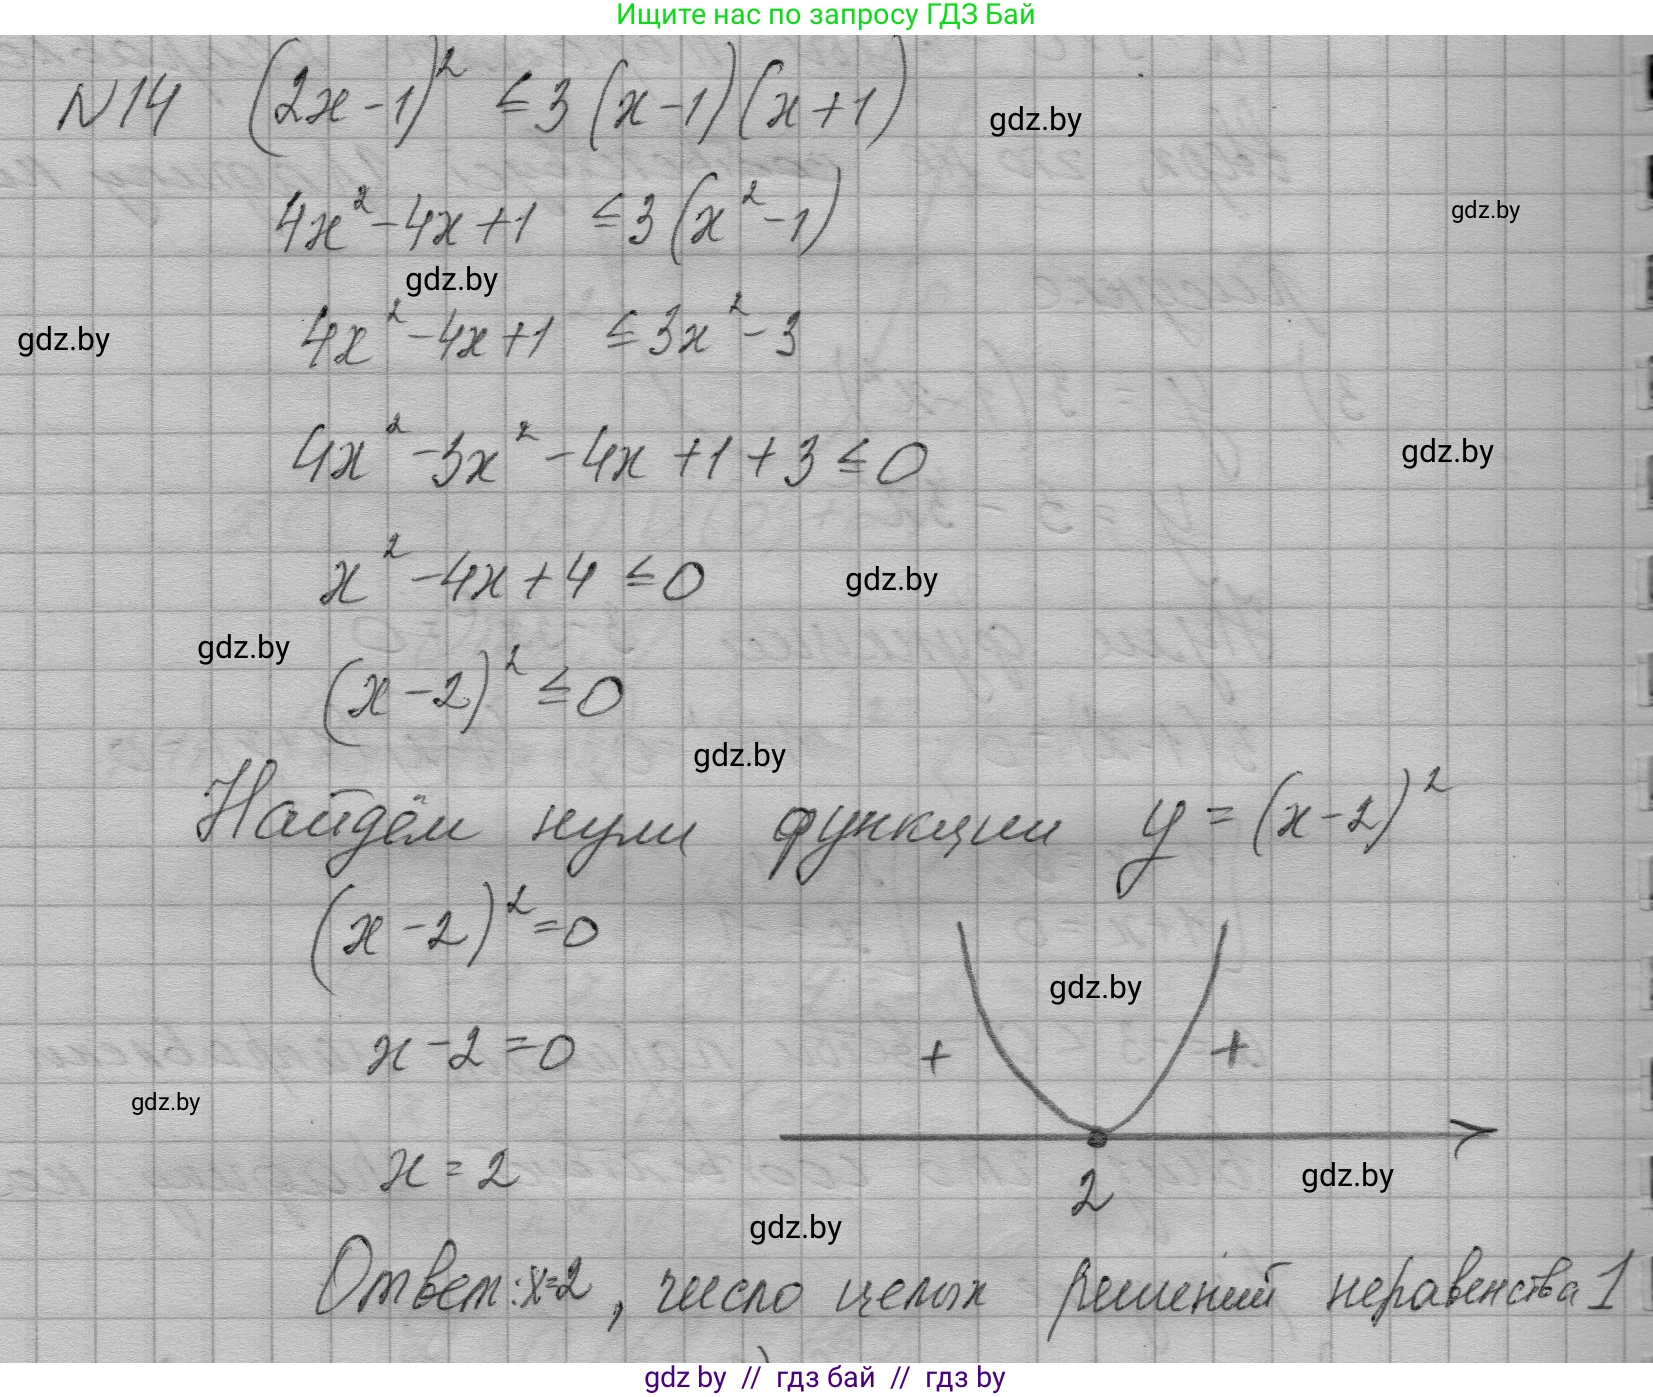 Ищите нас по запросу ГДЗ Бай
N14 (2x-1)² ≤ 3(x-1)(x+1)
gdz.by
4x²-4x+1 ≤ 3(x²-1)
gdz.by
gdz.by
4x²-4x+1 ≤ 3x²-3
gdz.by
4x²-3x²-4x+1+3 ≤ 0
gdz.by
x²-4x+4 ≤ 0
gdz.by
gdz.by
(x-2)² ≤ 0
gdz.by
Найдём нули функции y=(x-2)²
(x-2)²=0
gdz.by
x-2=0
+ +
gdz.by
x=2
2
gdz.by
gdz.by
Ответ: x=2, число целых решений неравенства 1
gdz by // гдз бай // gdz by